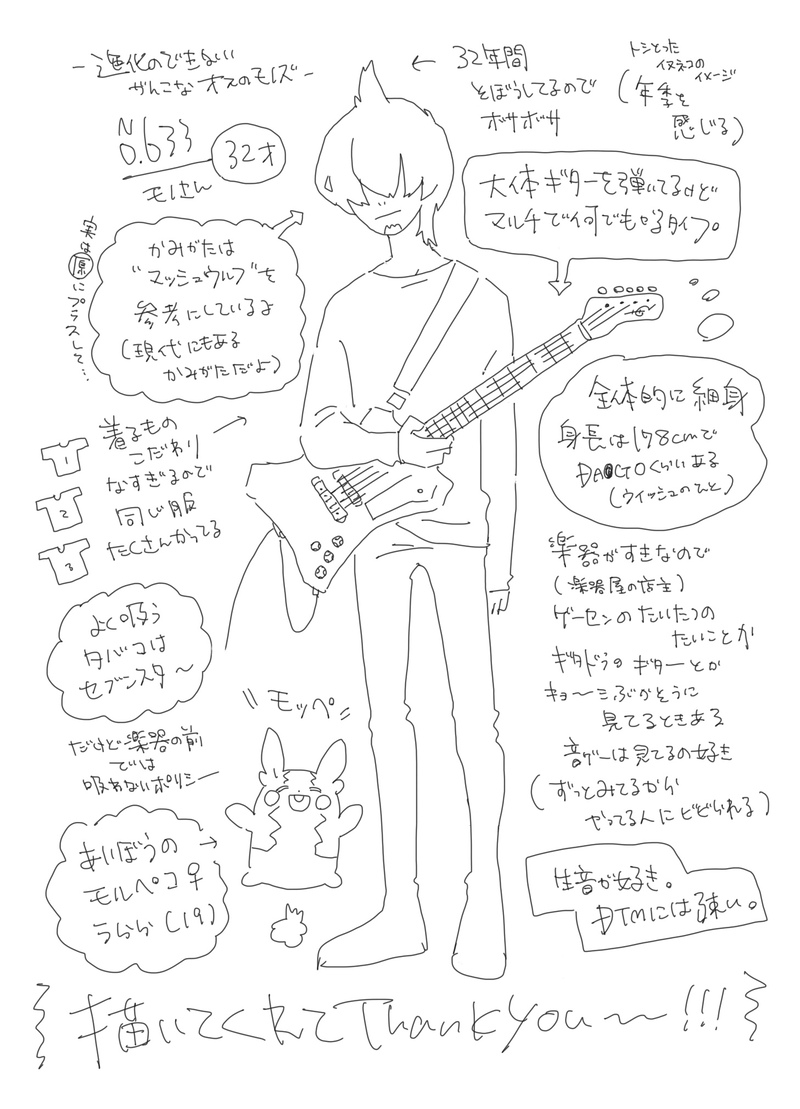 - 進化のできない
がんこなオスのモルズ -
N
0.633
32才
モノさん
← 32年間
そぼうしてるので
ボサボサ
トシとった
イヌネコの
イメージ
(年季を
感じる)
大体ギターを弾いてるけど
マルチで何でもやるタイプ。
かみがたは
"マッシュウルフ"を
参考にしているよ
(現代にもある
かみがただよ)
実は㊐にプラスして…
着るもの
こだわり
なすぎるので
同じ服
たくさんかってる
1
2
3
全体的に細身
身長は178cmで
DAIGOくらいある
(ウィッシュのひと)
よく吸う
タバコは
セブンスター〜
だけど楽器の前
では
吸わないポリシー
楽器がすきなので
(楽器屋の店主)
ゲーセンのたいたつの
たいことか
ギタドラのギターとか
キョーミぶかそうに
見てるときある
音ゲーは見てるの好き
(ずっとみてるから
やってる人にビビられる)
モッペ
あいぼうの →
モルペコ♀
うらら(19)
生音が好き。
DTMには疎い。
描いてくれてThankYou〜〜!!!